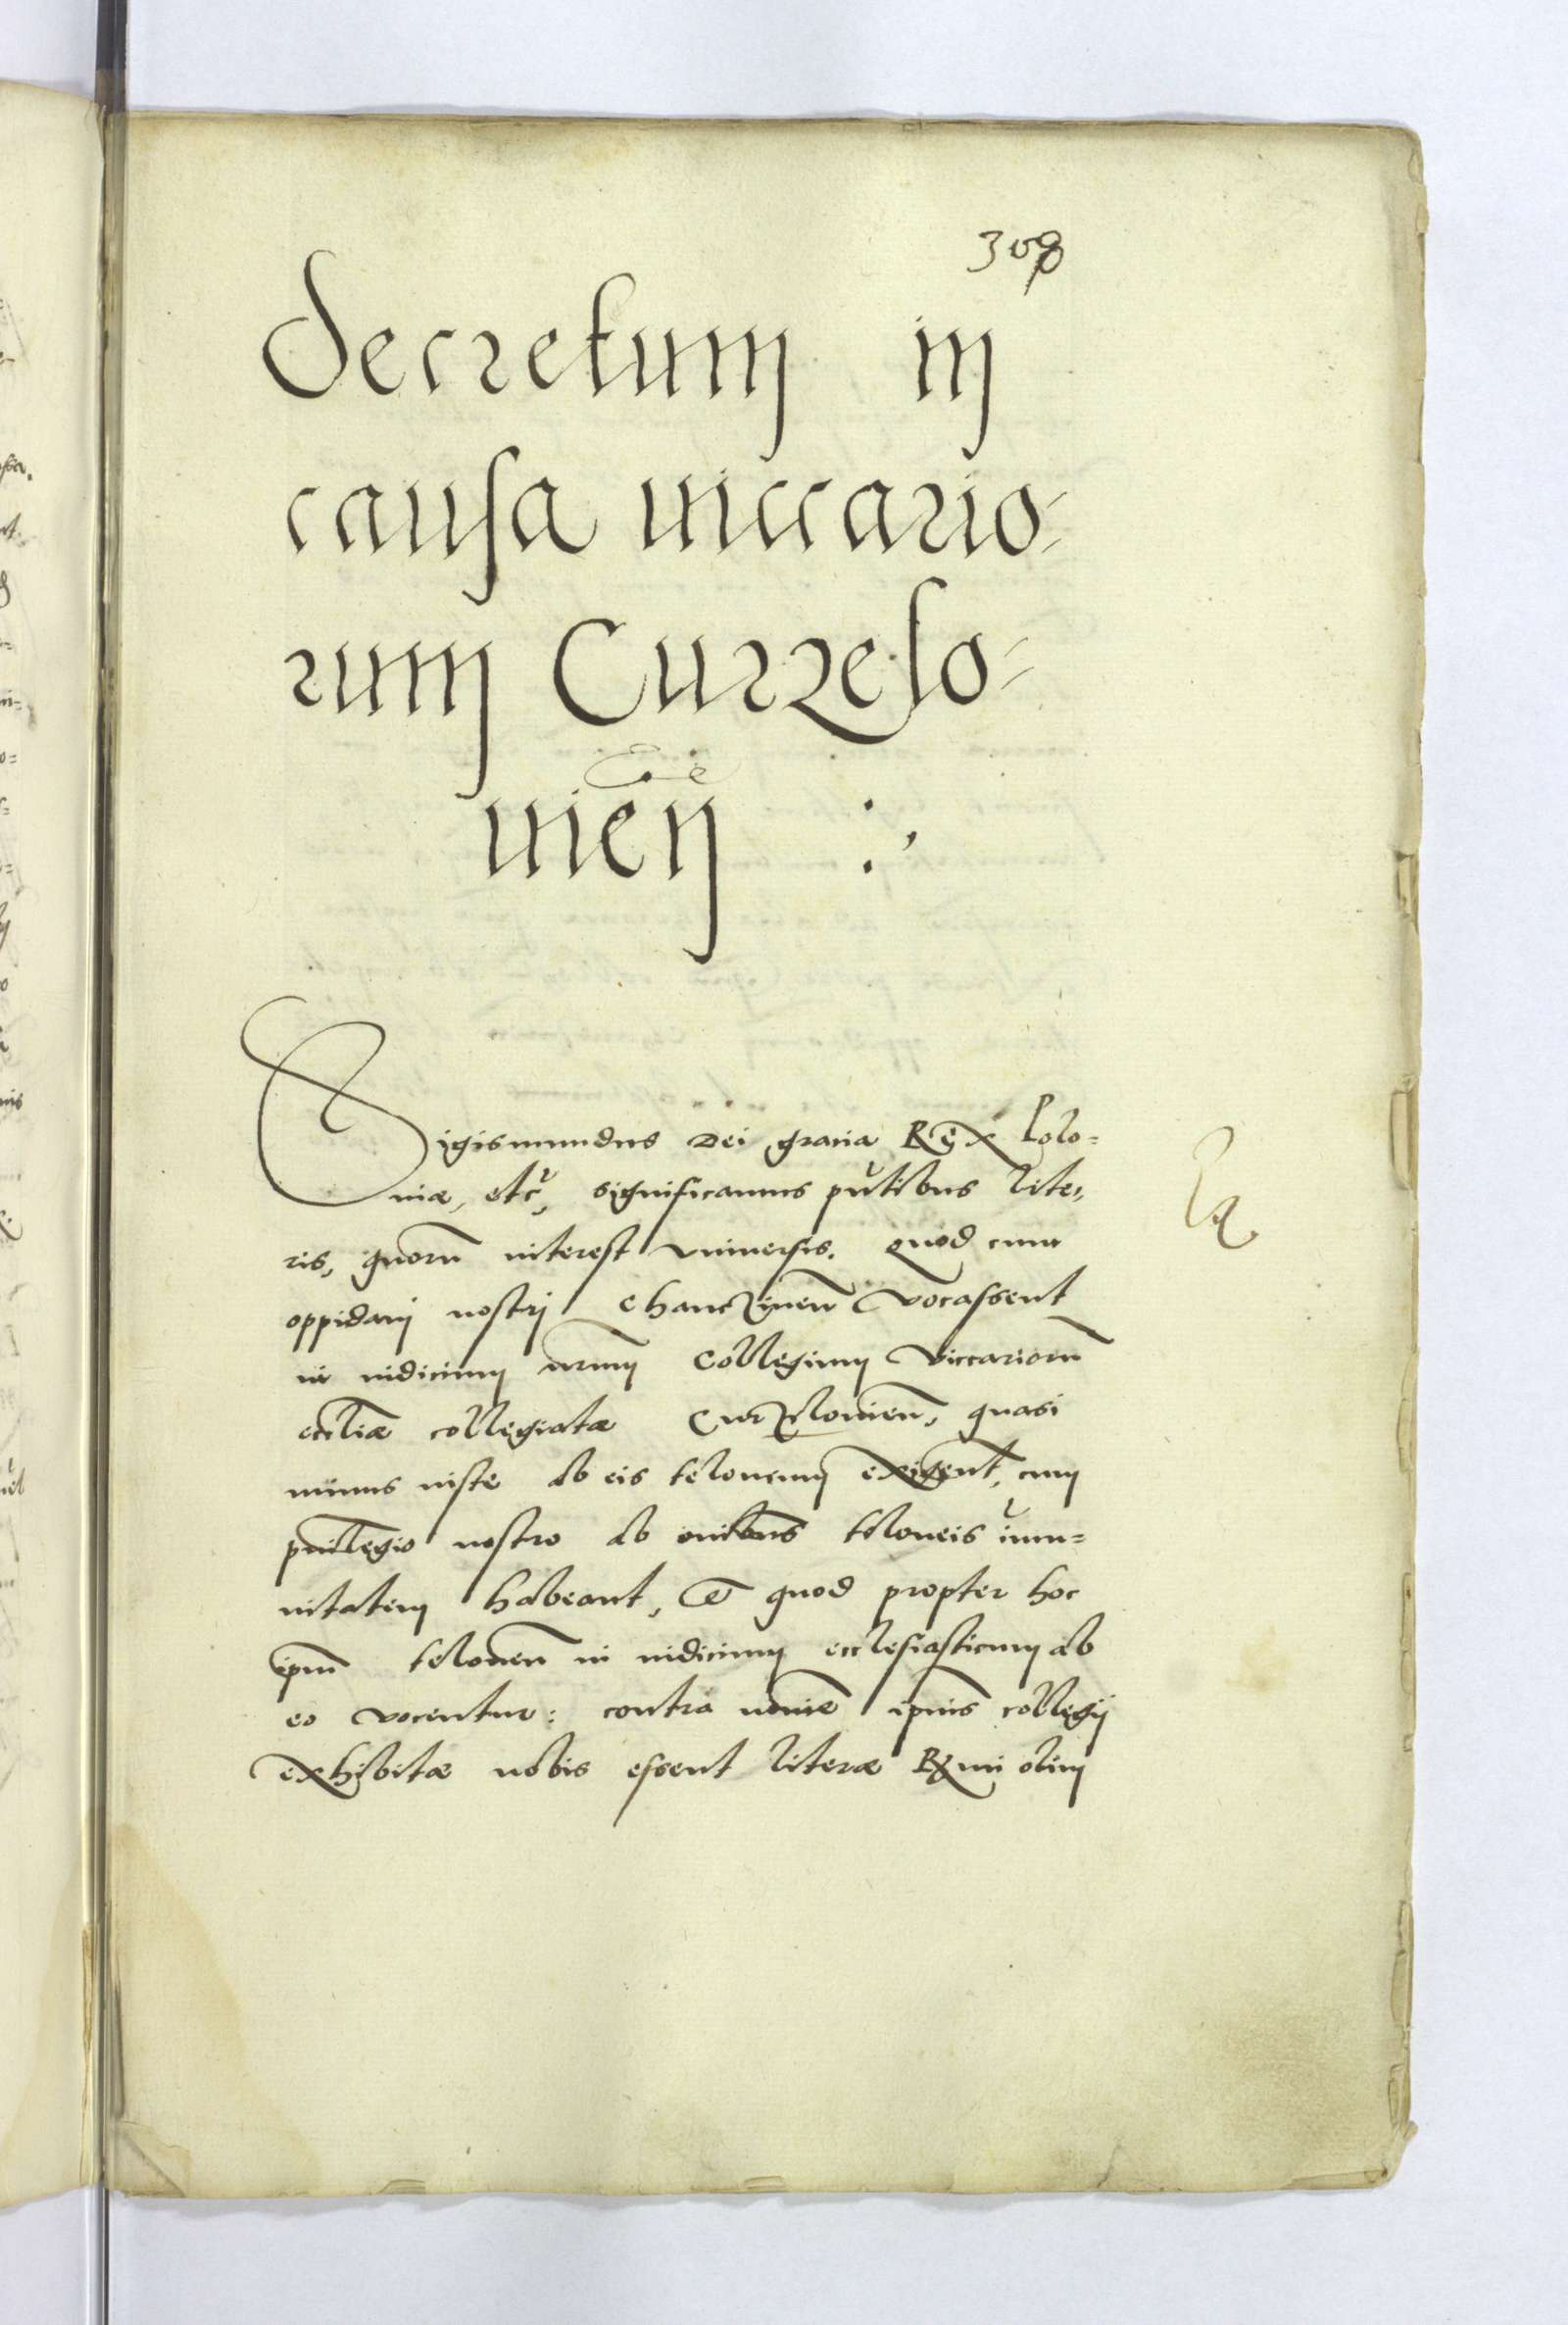 308
Decretum in
causa viccario-
rum Curzelo-
nieñ :
Sigismundus Dei gracia Rex Polo-
niæ, etc̃, significamus pñtibus lite-
ris, quorũ interest vniuersis. quod cum
oppidanj nostrj Chanczineñ vocassent
in iudicium nrum Collegium Viccariorũ
eccliæ collegiatæ Curzeloniẽn, quasi
minus iuste ab eis teloneum exigent, cum
priuilegio nostro ab oñibus teloneis imu-
nitatem habeant, et quod propter hoc
ipm̃ teloneũ in iudicium ecclesiasticum ab
eo vocentur: contra noĩe ipius collegij
exhibitæ nobis essent literæ Rx̃mi olim